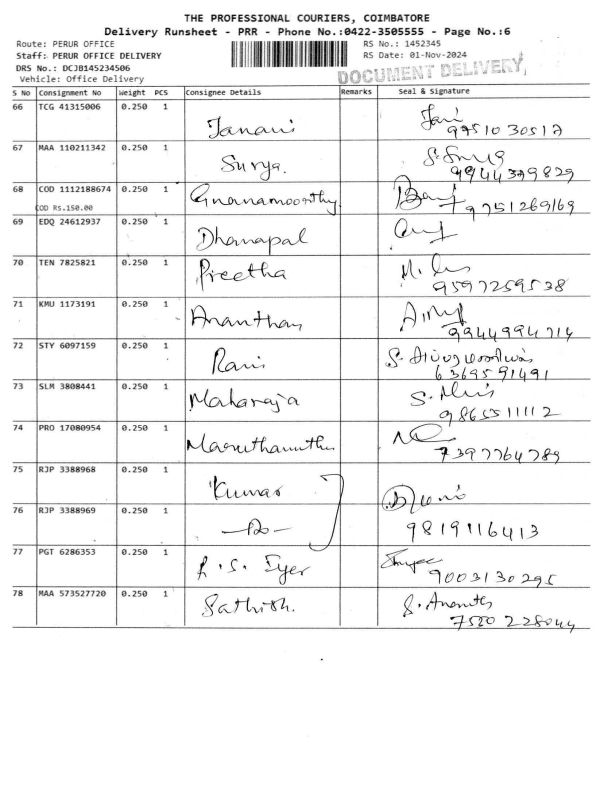 THE PROFESSIONAL COURIERS, COIMBATORE
Delivery Runsheet - PRR - Phone No.:0422-3505555 - Page No.:6
Route: PERUR OFFICE RS No.: 1452345
Staff: PERUR OFFICE DELIVERY RS Date: 01-Nov-2024
DRS No.: DCJB145234506
Vehicle: Office Delivery
DOCUMENT DELIVERY
S No Consignment No Weight PCS Consignee Details Remarks Seal & Signature
66 TCG 41315006 0.250 1 Janani
9751030517
67 MAA 110211342 0.250 1 Surya.
9944379829
68 COD 1112188674 0.250 1 Gnanamoorthy
COD Rs.150.00 9751269169
69 EDQ 24612937 0.250 1 Dhanapal
70 TEN 7825821 0.250 1 Preetha
9597259538
71 KMU 1173191 0.250 1 Ananthan
9944994714
72 STY 6097159 0.250 1 Rani
6369591491
73 SLM 3808441 0.250 1 Maharaja
9865511112
74 PRO 17080954 0.250 1 Maruthamuthu
7397764789
75 RJP 3388968 0.250 1 Kumar
76 RJP 3388969 0.250 1 -Do-
9819116413
77 PGT 6286353 0.250 1 R.S. Iyer
9003130295
78 MAA 573527720 0.250 1 Sathish.
7520228044